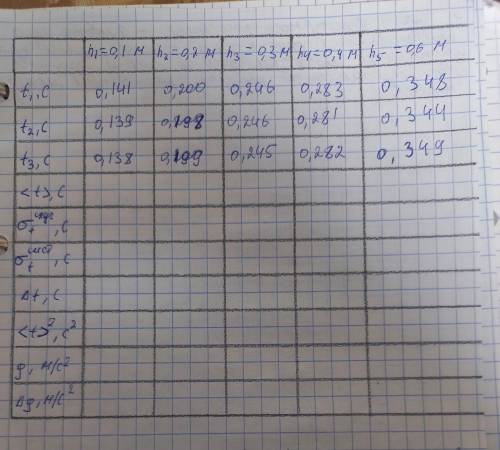 h₁=0,1 м h₂=0,2 м h₃=0,3 м h₄=0,4 м h₅=0,6 м
t₁, с 0,141 0,200 0,246 0,283 0,348
t₂, с 0,139 0,198 0,246 0,281 0,344
t₃, с 0,138 0,199 0,245 0,282 0,349
<t>, с
σₜ, с
σₜ, с
Δt, с
<t>², с²
g, м/с²
Δg, м/с²